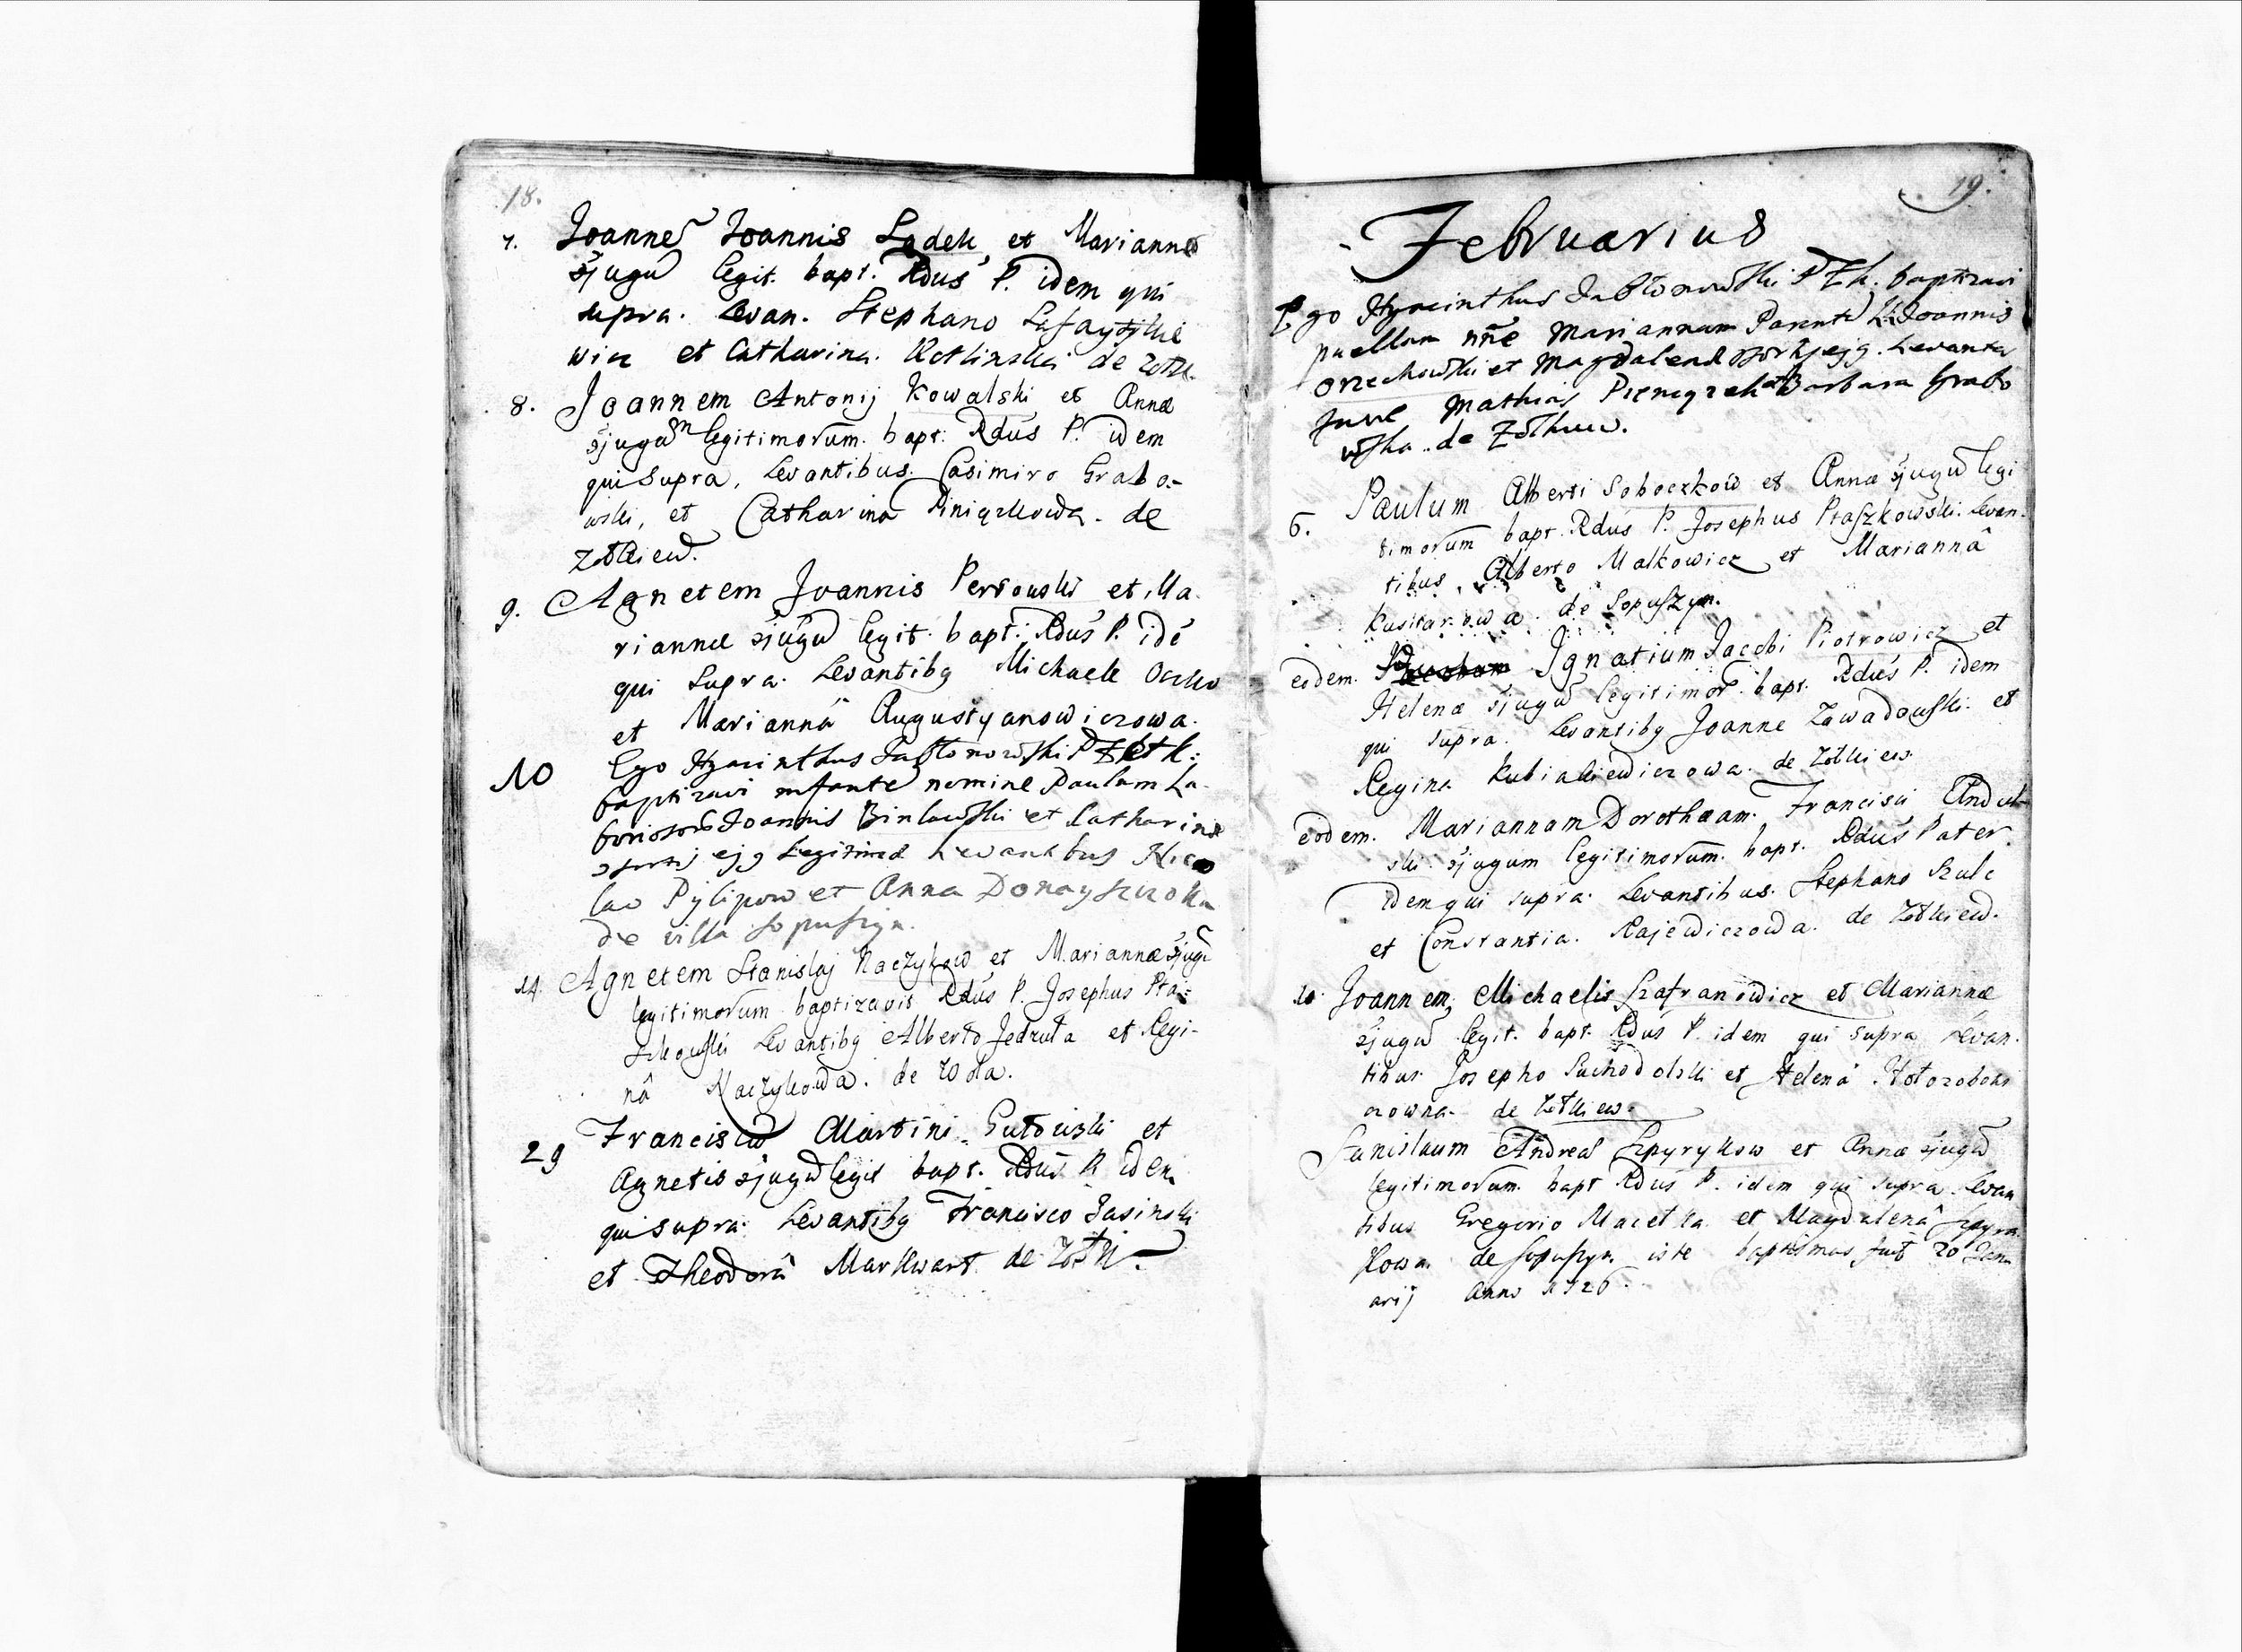 18.
7. Joannem Joannis Ladek et Mariannæ
Cjugum legit. bapt. Rdus P. idem qui
supra. Levan. Stephano
wicz et Catharina. Kotlinska de Zolk.
8. Joannem Antonij Kowalski et Annæ
Cjugum legitimorum. bapt: Rdus P. idem
qui supra, Levantibus. Casimiro Grabo-
wski, et Catharina Piniązkowa. de
Zolkiew.
9. Agnetem Joannis Persouski et Ma
riannæ Cjugum legit. bapt: Rdus P. idē
qui supra. Levantibg Michaele Oczko
et Mariannâ Augustyanowiczowa.
10 Ego Hyacinthus Jabłonowski P Z et k:
baptizavi infantē nomine Paulum La
boriosorū Joannis Binlawski et Catharinæ
ejg Legitimæ Levantibus Nico
lao Pylipow et Anna
de villa Sopuszyn.
14. Agnetem Stanislaj Naczykow et Mariannæ Cjugū
legitimorum baptizavit Rdus P. Josephus Pta-
szkouski Levantibg Alberto Jedruta et Regi-
nâ Naczykowa. de Wola.
29 Franciscū Martini Gutouski et
Agnetis Cjugū legit bapt. Rdus P. idem
qui supra. Levantibg Francisco Jasinski
et Theodorâ Markwart de Zołk.
19.
Februarius
Ego Hyacinthus Jabłonowski P Z k. baptizavi
puellam nn̄e Mariannam Parentū Joannis
Orzechowski et Magdalenæ ejg. Levantes
fuere Mathias Pieniązek et Barbara Grabo
wska. de Zolkiew.
6. Paulum Alberti Soboczkow et Annæ Cjugū legi
timorum bapt. Rdus P. Josephus Ptaszkowski. Levan-
tibus. Alberto Malkowicz et Mariannâ
de Sopuszyn.
eodem. Ignatium Jacobi Piotrowicz et
Helenæ Cjugū legitimor. bapt. Rdus P. idem
qui supra. Levantibg Joanne Zawadouski. et
Regina Kubiakiewiczowa. de Zolkiew.
eodem. Mariannam Dorothæam. Francisci
ski Cjugum legitimorum. bapt. Rdus Pater.
idem qui supra. Levantibus. Stephano Szulc
et Constantia. Rajewiczowa. de Zolkiew.
10. Joannem, Michaelis Szafranowicz et Mariannæ
Cjugū legit. bapt. Rdus P. idem qui supra Levan-
tibus Josepho Suchodolski et Helenâ
czowna. de Zolkiew.
Stanislaum Andreæ Szpyrykow et Annæ Cjugū
legitimorum. bapt Rdus P. idem qui supra. Levan
tibus Gregorio Macetka et Magdalenâ Szpyry
kowa. de Sopuszyn. iste baptismus fuit 20 Janu
arij Anno 1726.